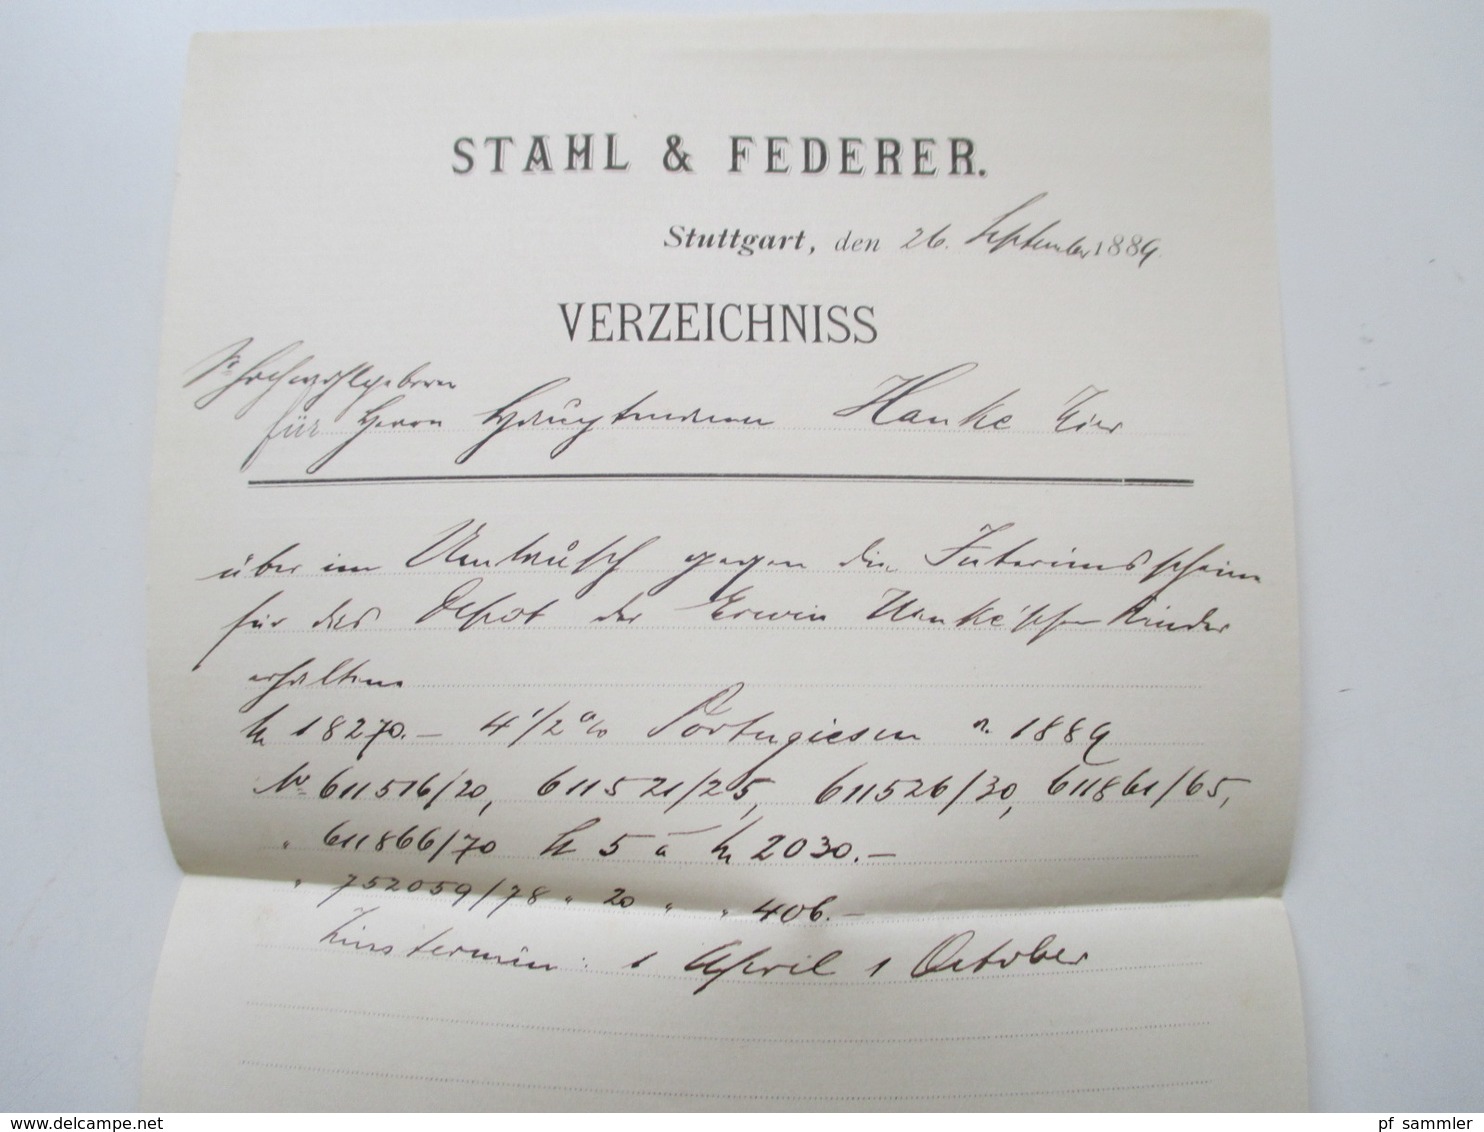 STAHL & FEDERER.
Stuttgart, den 26. September 1889
VERZEICHNISS
Sr Hochwohlgeboren
für Herrn Hauptmann Hanke hier
über im Umtausch gegen die Interimsscheine
für das Depot der Erwin Hanke'schen Kinder
erhaltene
M 18270.– 4 1/2 % Portugiesen v. 1889
No 611516/20, 611521/25, 611526/30, 611861/65,
" 611866/70 St 5 à M 2030.–
" 752059/78 " 20 " " 406.–
Zinstermin: 1 April 1 October
pf sammler
delcampe.net